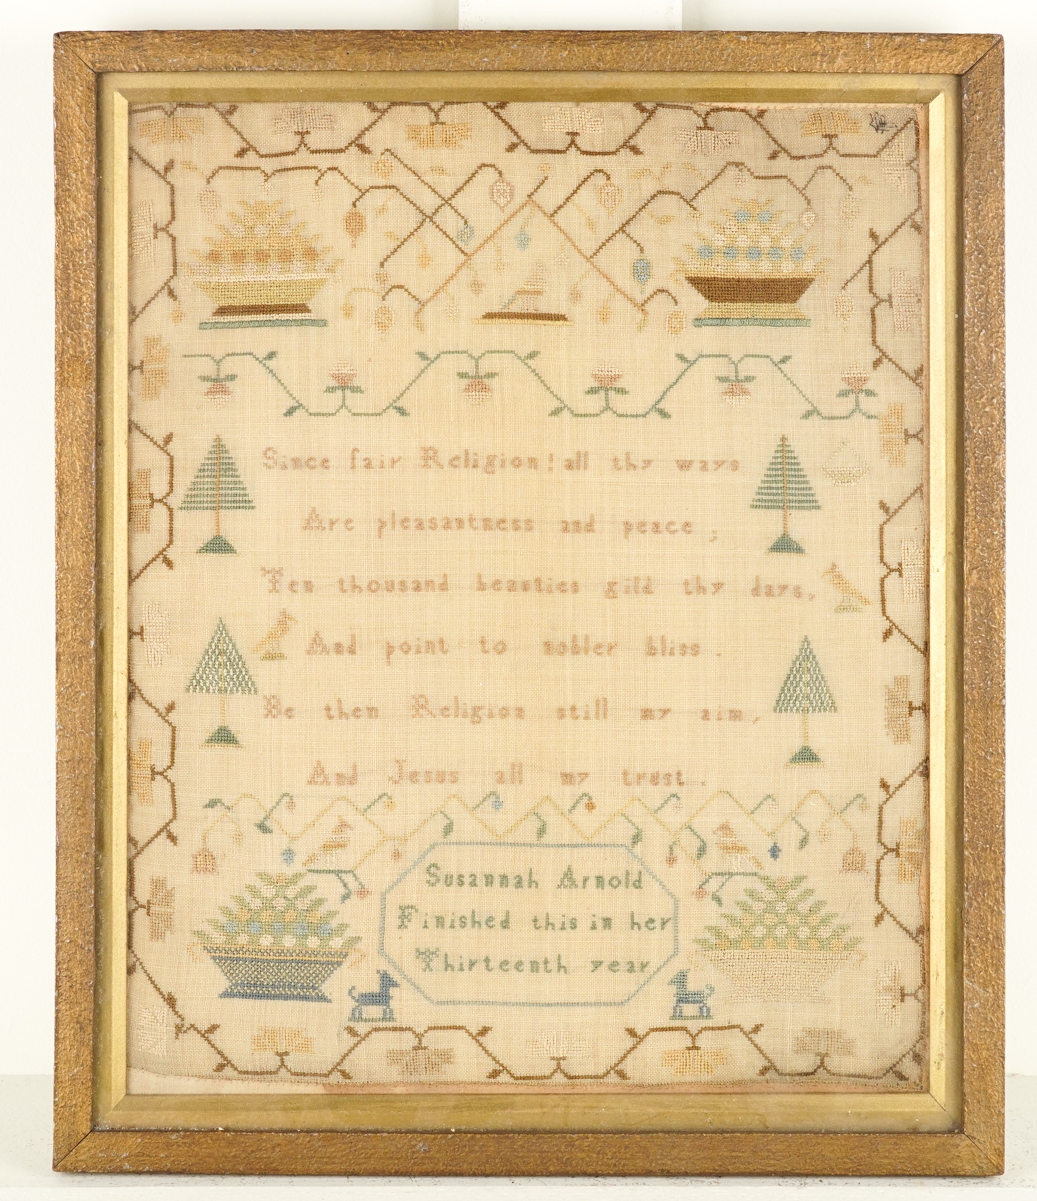 Since fair Religion! all thy ways
Are pleasantness and peace ;
Ten thousand beauties gild thy days,
And point to nobler bliss .
Be then Religion still my aim,
And Jesus all my trust .
Susannah Arnold
Finished this in her
Thirteenth year